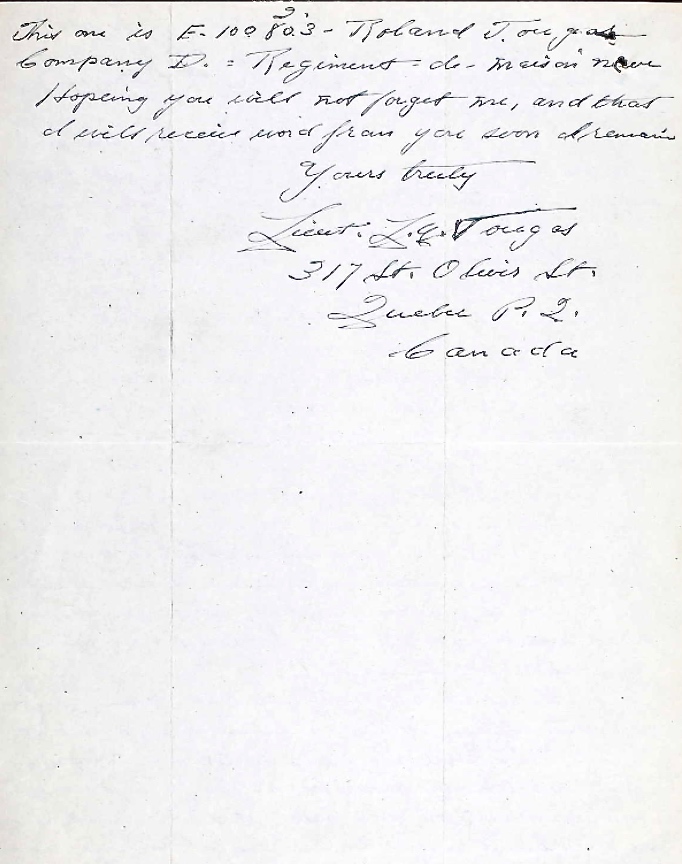 This one is E-100803 - Roland Tougas
Company D. = Regiment = de - maison neuve
Hopeing you will not forget me, and that
I will receive word from you soon I remain
Yours truly
Lieut. L. Tougas
317 St. Olivir St.
Quebec P. Q.
Canada